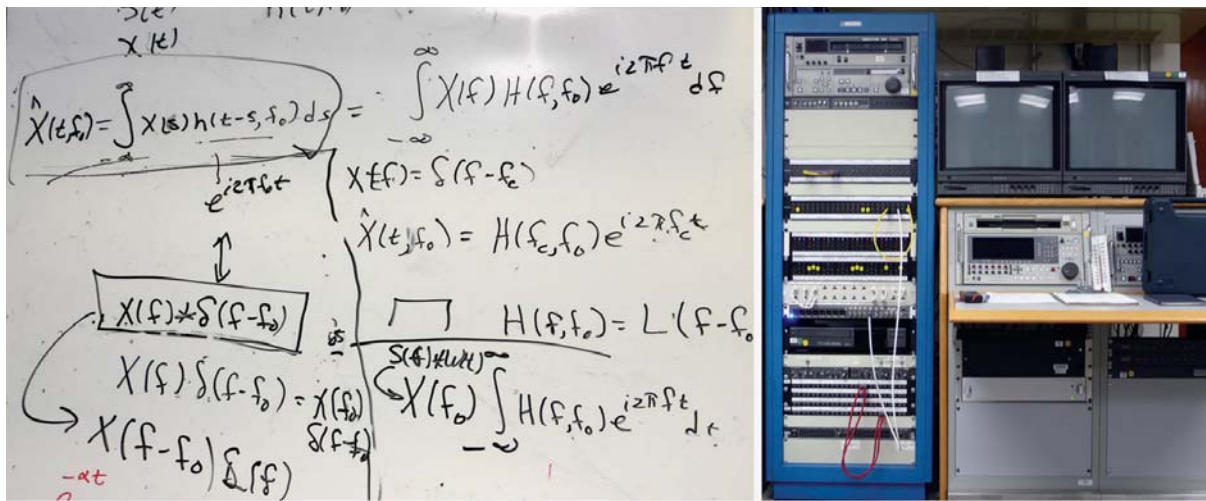 X(t)
X̂(t,f₀) = ∫_{-∞}^{∞} X(s) h(t-s, f₀) ds = ∫_{-∞}^{∞} X(f) H(f, f₀) e^{i2πft} df
e^{i2πf₀t}
X(f) = δ(f-f_c)
X̂(t, f₀) = H(f_c, f₀) e^{i2πf_c t}
X(f) * δ(f-f₀)
H(f, f₀) = L(f-f₀
X(f) δ(f-f₀) = X(f₀) δ(f-f₀)
X(f₀) ∫_{-∞}^{∞} H(f, f₀) e^{i2πft} dt
X(f-f₀) δ(f)
-αt